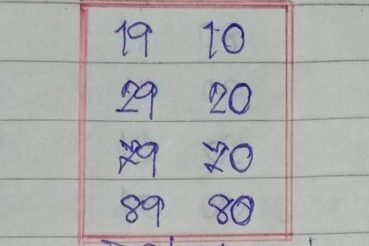 19 10
29 20
79 70
89 80